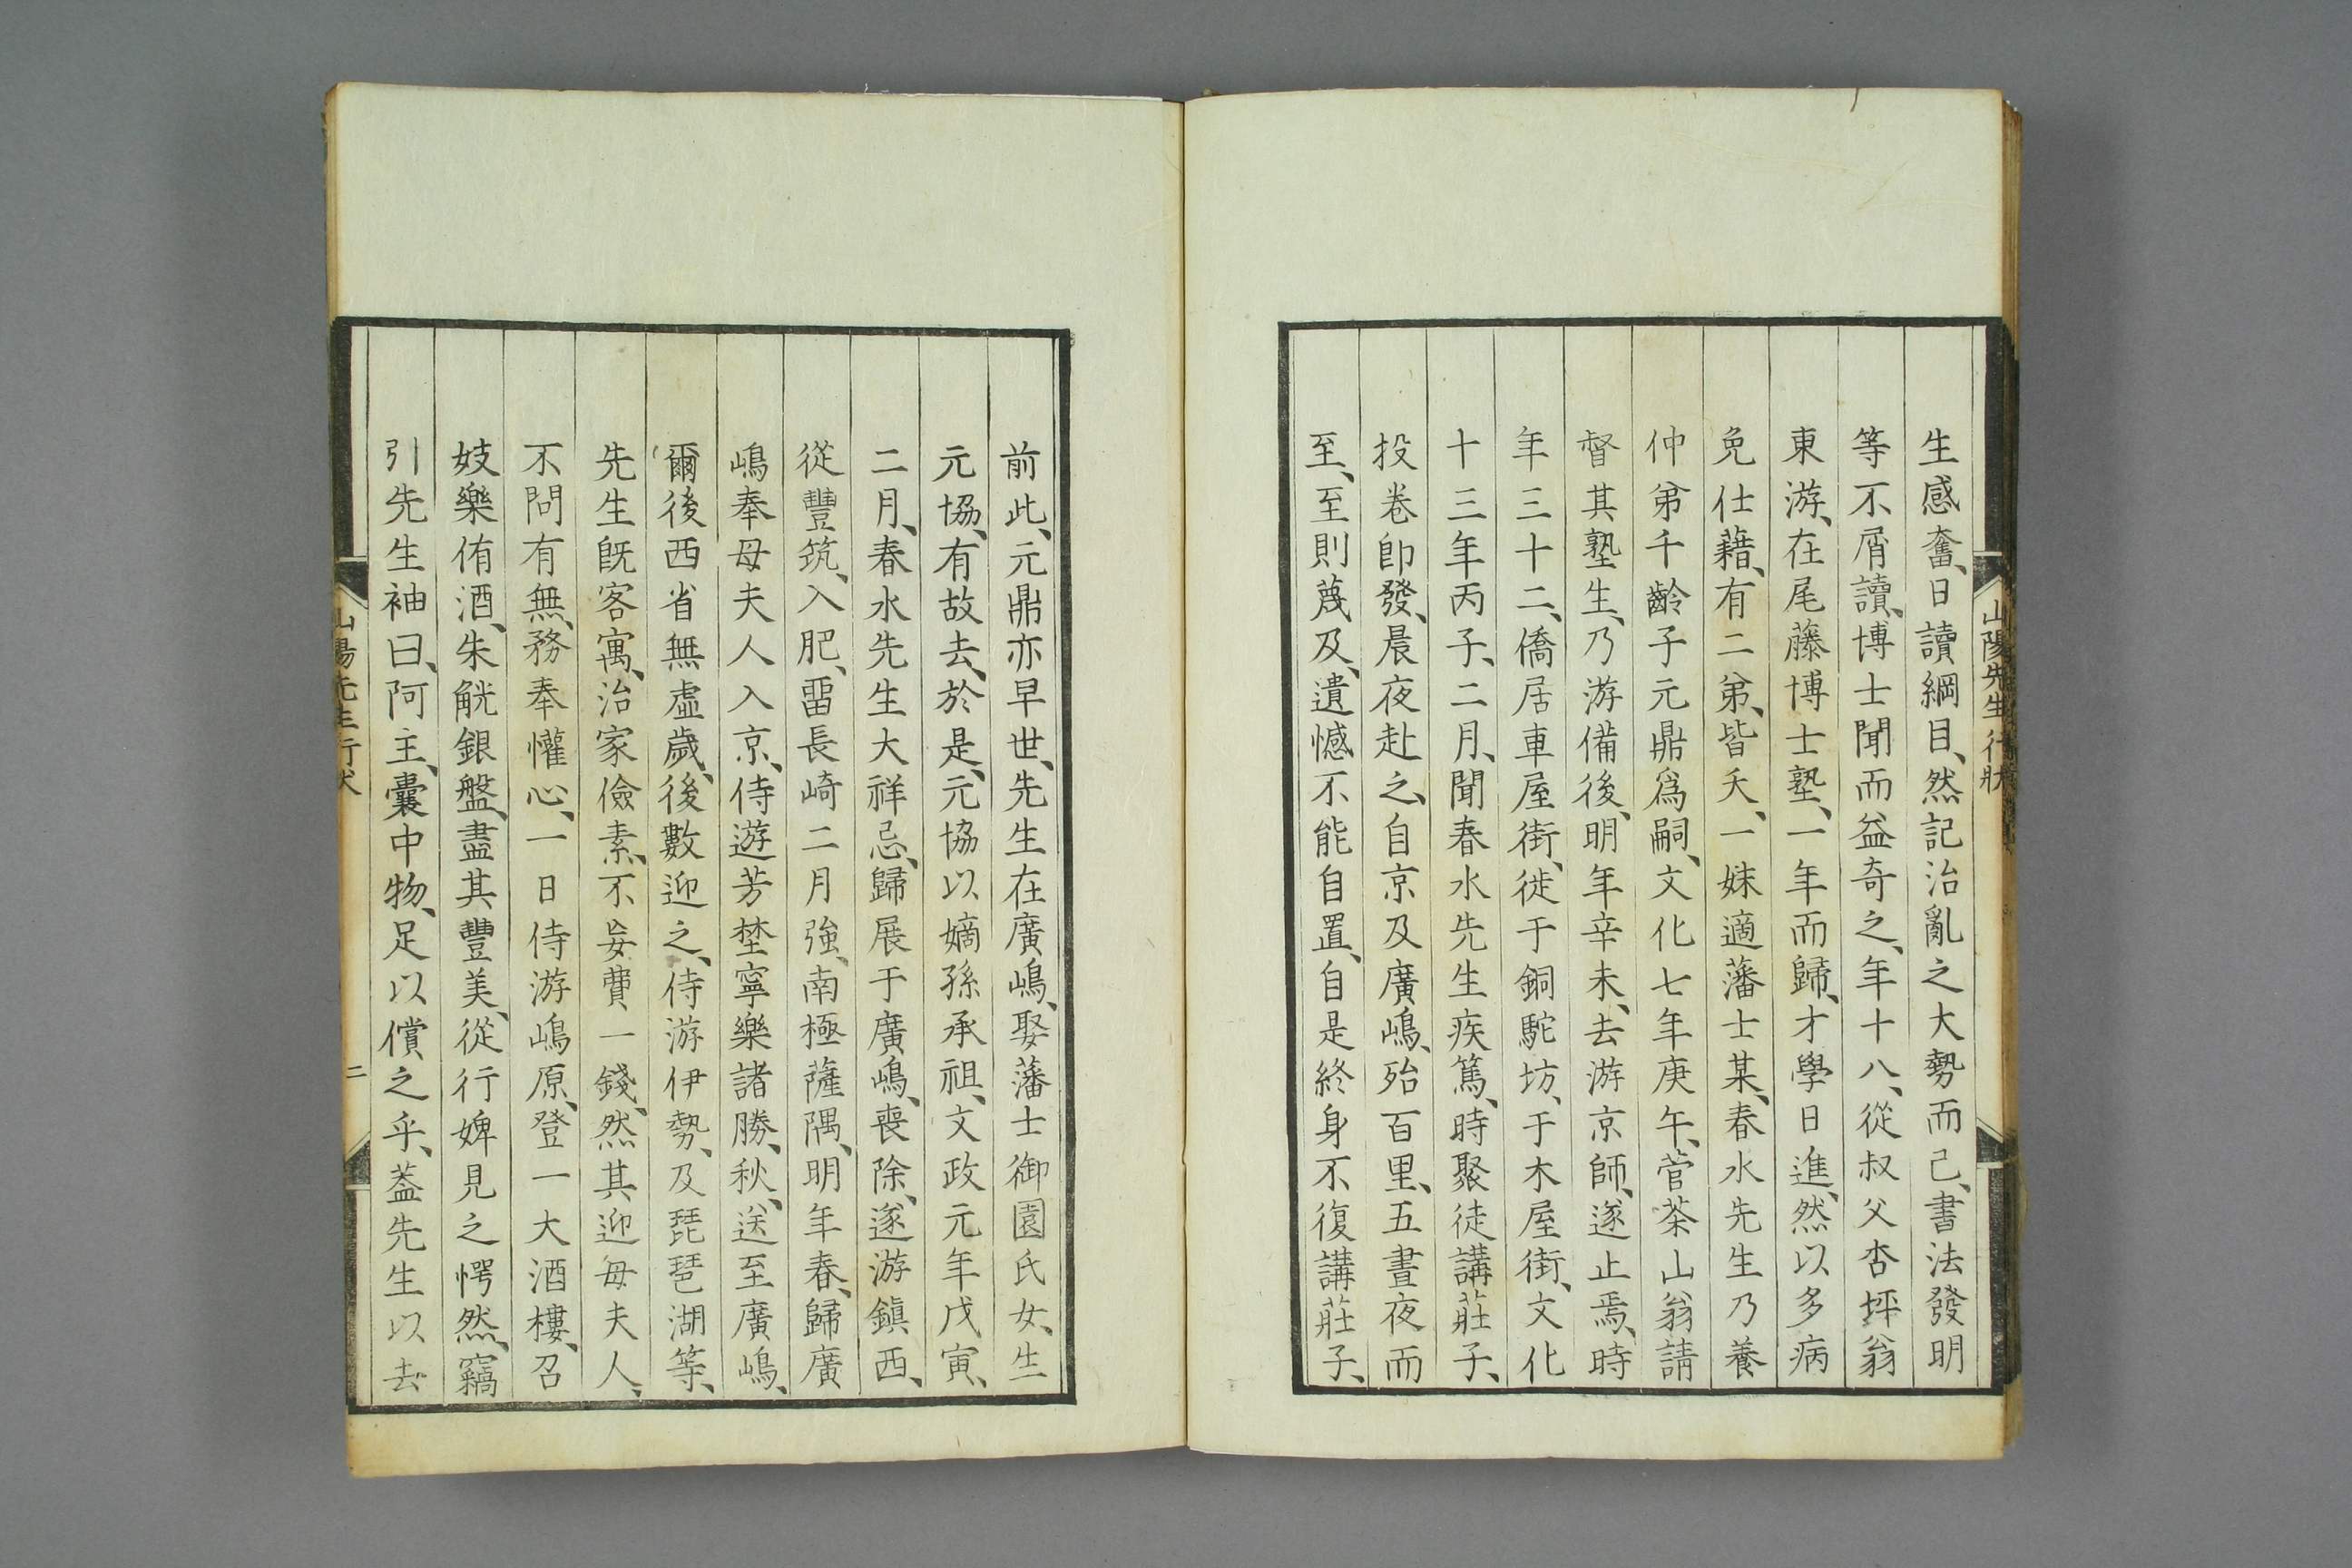 山陽先生行狀
生感奮、日讀綱目、然記治亂之大勢而已、書法發明
等不屑讀、博士聞而益奇之、年十八、從叔父杏坪翁
東游、在尾藤博士塾、一年而歸、才學日進、然以多病
免仕藉、有二弟、皆夭、一妹適藩士某、春水先生乃養
仲弟千齡子元鼎爲嗣、文化七年庚午、菅茶山翁請
督其塾生、乃游備後、明年辛未、去游京師、遂止焉、時
年三十二、僑居車屋街、徙于銅駝坊、于木屋街、文化
十三年丙子、二月、聞春水先生疾篤、時聚徒講莊子、
投卷卽發、晨夜赴之、自京及廣嶋、殆百里、五晝夜而
至、至則蔑及、遺憾不能自置、自是終身不復講莊子、
前此、元鼎亦早世、先生在廣嶋、娶藩士御園氏女、生
元協、有故去、於是、元協以嫡孫承祖、文政元年戊寅、
二月、春水先生大祥忌、歸展于廣嶋、喪除、遂游鎭西、
從豐筑、入肥、畱長崎二月強、南極薩隅、明年春、歸廣
嶋奉母夫人入京、侍遊芳埜寧樂諸勝、秋、送至廣嶋、
爾後西省無虛歲、後數迎之、侍游伊勢、及琵琶湖等、
先生旣客寓、治家儉素、不妄費一錢、然其迎母夫人、
不問有無、務奉懽心、一日侍游嶋原、登一大酒樓、召
妓樂侑酒、朱觥銀盤、盡其豐美、從行婢見之愕然、竊
引先生袖曰、阿主、囊中物、足以償之乎、蓋先生以去
山陽先生行狀
二